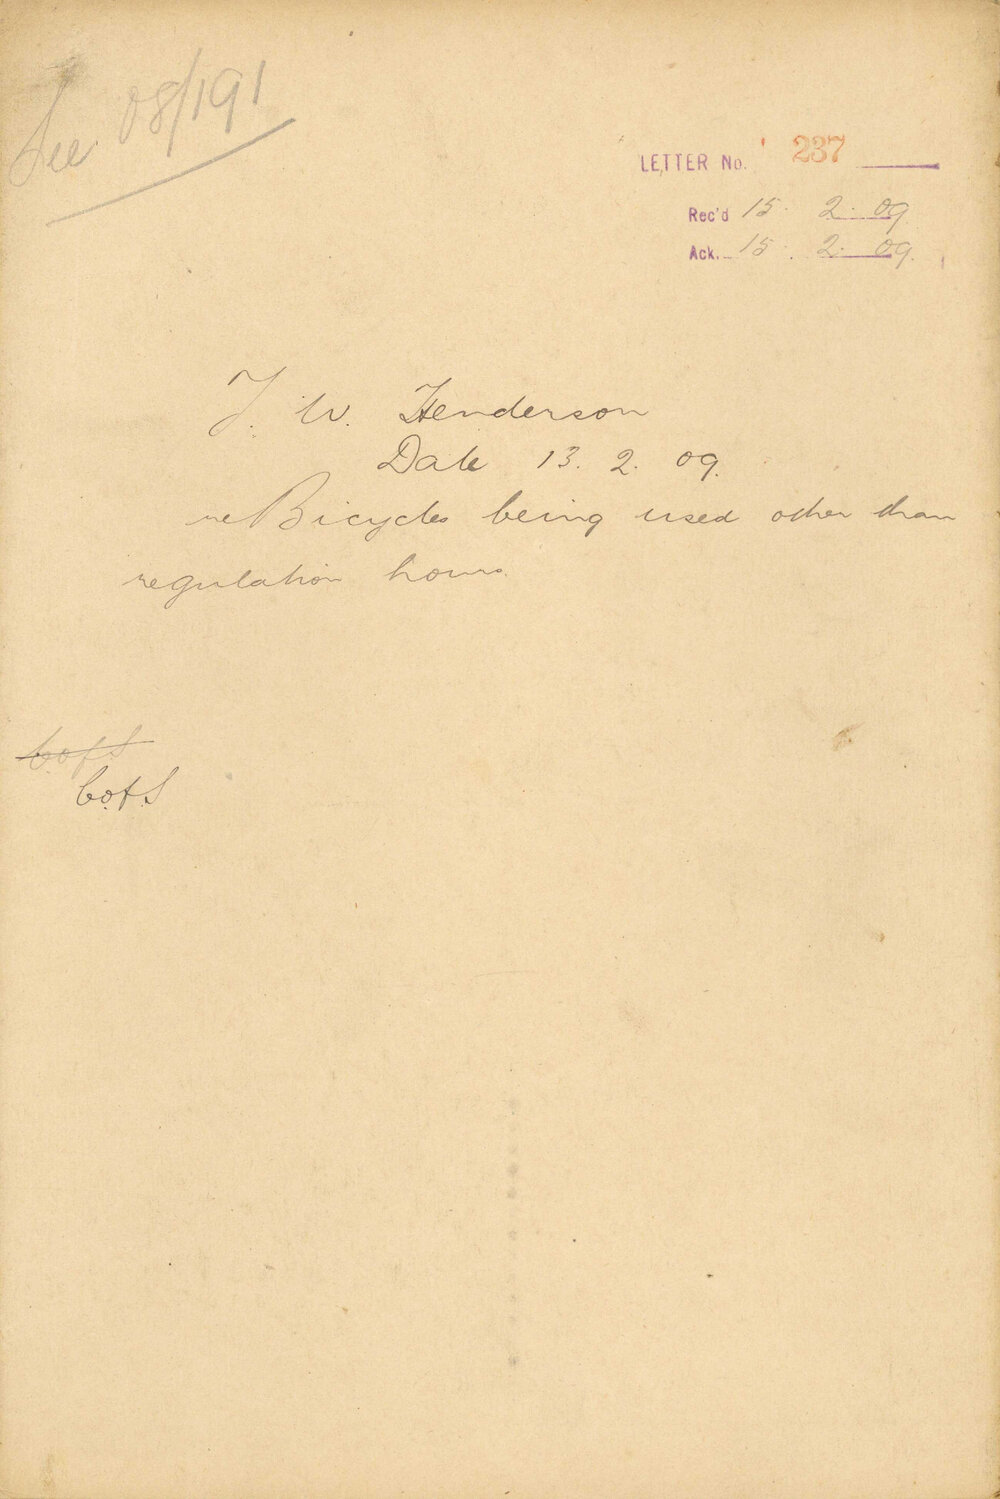 See 08/191
LETTER No. 237
Rec'd 15. 2. 09
Ack. 15. 2. 09.
J. W. Henderson
Date 13. 2. 09.
re Bicycles being used other than
regulation hours.
C of S
C.of.S